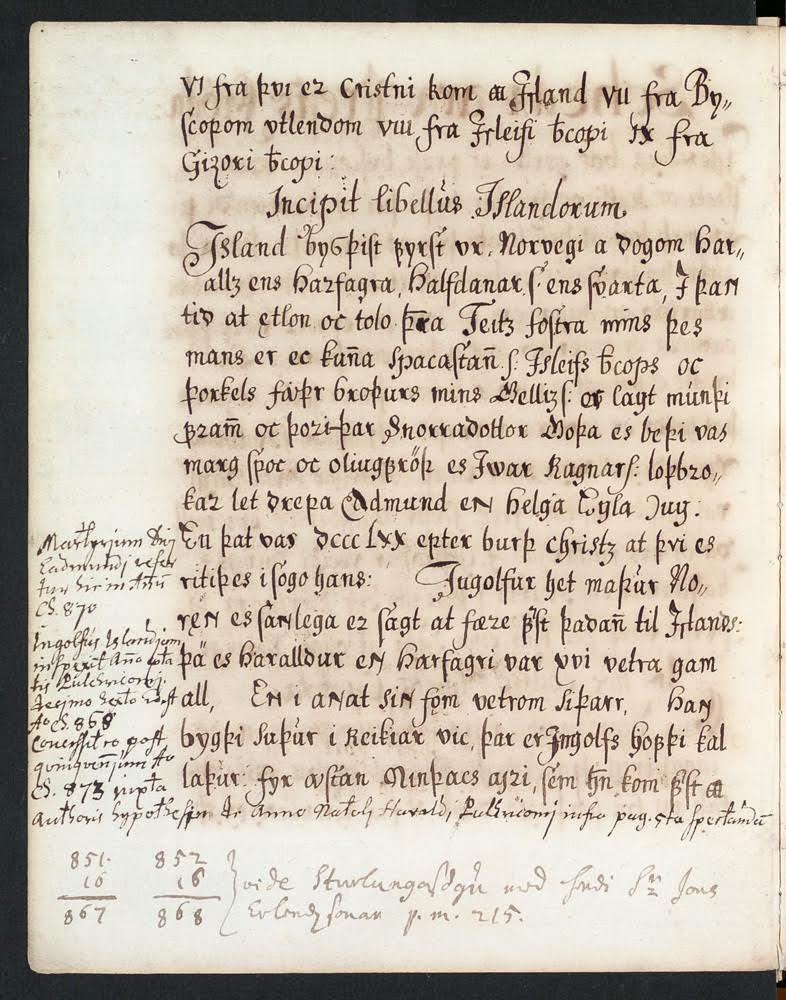 VI fra þvi er Cristni kom a Jsland VII fra By„
scopom vtlendom VIII fra Jsleifi bcopi IX fra
Gizori bcopi:
Incipit libellus Islandorum
Jsland bygþist fyrst vr. Norvegi a dogom Har„
allz ens Harfagra, Halfdanar s. ens svarta, J þan
tiþ at ętlon oc tolo þra Teitz fostra mins þes
mans er ec kuña spacastañ s: Jsleifs bcops oc
þorkels favþr broþurs mins Gellizs: er lagt munþi
fram̃ oc þoriþar Snorradottor Goþa es beþi vas
marg spoc oc oliugfröþ es Jwar Ragnars: loþbro„
kar let drepa Eadmund en helga Engla
En þat vas DCCC LXX epter burþ christz at þvi es
ritiþes i sogo hans: Ingolfur het maþur No„
ręn es sanlega er sagt at fære fyst þadañ til Jslands:
þa es Haralldur en Harfagri var XVI vetra gam
all, En i anat sin fom vetrom siþarr, han
bygþi suþur i Reikiar vic, þar er Ingolfs hofþi kal
laþur: fyr austan Minþacs ayri, sem hn kom fyst a
Martyrium Divi
Eadmundj refer
tur hic in
Ch. 870
Ingolfus Islandiam
inspexit Año æta
tis Pulchricomj.
decimo sexto
Ao Ch. 868
Concessit eo post
qvinqvenium Ao
Ch. 873 juxta
Authoris hypothesin de Anno Natalj Haraldj Pulchricomj infra pag. 5ta spectandu
851. 852
16 16
867 868
vide Sturlungasögu med hendi Sr Jons
Erlendssonar p. m. 215.